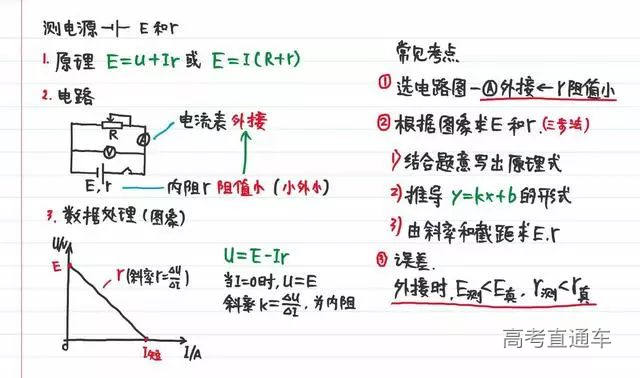 测电源 E和r
1. 原理 E=U+Ir 或 E=I(R+r)
2. 电路
R
A
V
E,r
电流表外接
内阻r 阻值小(小外小)
3. 数据处理(图象)
U/V
E
r(斜率r=ΔU/ΔI)
I短
I/A
U=E-Ir
当I=0时,U=E
斜率k=ΔU/ΔI,为内阻
常见考点
① 选电路图-Ⓐ外接←r阻值小
② 根据图象求E和r.(三步法)
1) 结合题意写出原理式
2) 推导 y=kx+b 的形式
3) 由斜率和截距求E.r
③ 误差.
外接时,E测<E真, r测<r真
高考直通车